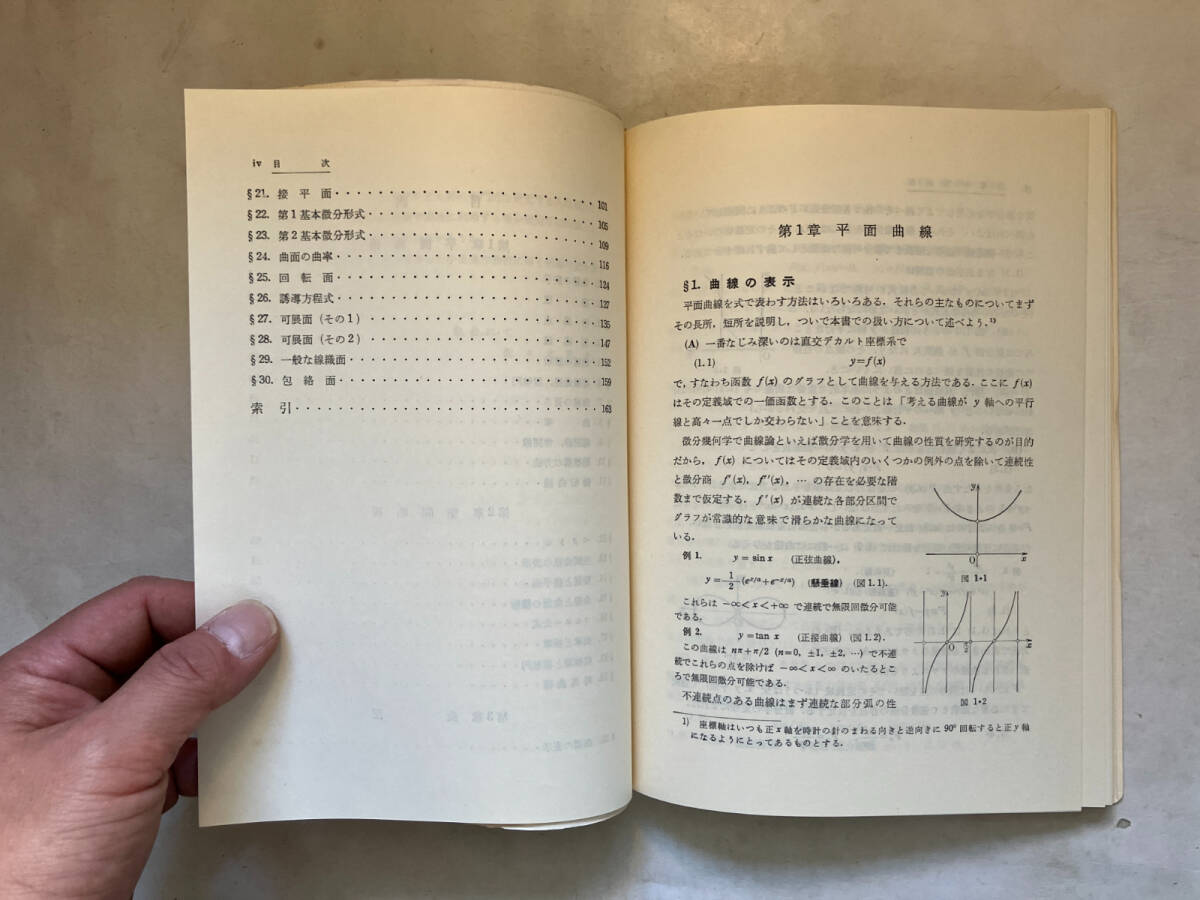 iv 目 次
§21. 接 平 面 ・・・・・・・・・・・・・・・・・・・・・・・・ 101
§22. 第1基本微分形式 ・・・・・・・・・・・・・・・・・・・・・ 105
§23. 第2基本微分形式 ・・・・・・・・・・・・・・・・・・・・・ 109
§24. 曲面の曲率 ・・・・・・・・・・・・・・・・・・・・・・・・ 116
§25. 回 転 面 ・・・・・・・・・・・・・・・・・・・・・・・・ 124
§26. 誘導方程式 ・・・・・・・・・・・・・・・・・・・・・・・・ 127
§27. 可展面 (その1) ・・・・・・・・・・・・・・・・・・・・・ 135
§28. 可展面 (その2) ・・・・・・・・・・・・・・・・・・・・・ 147
§29. 一般な線織面 ・・・・・・・・・・・・・・・・・・・・・・・ 152
§30. 包 絡 面 ・・・・・・・・・・・・・・・・・・・・・・・・ 159
索 引 ・・・・・・・・・・・・・・・・・・・・・・・・・・・ 163
第1章 平 面 曲 線
§1. 曲線の表示
平面曲線を式で表わす方法はいろいろある．それらの主なものについてまず
その長所，短所を説明し，ついで本書での扱い方について述べよう．¹⁾
(A) 一番なじみ深いのは直交デカルト座標系で
(1.1) y=f(x)
で，すなわち函数 f(x) のグラフとして曲線を与える方法である．ここに f(x)
はその定義域での一価函数とする．このことは「考える曲線が y 軸への平行
線と高々一点でしか交わらない」ことを意味する．
微分幾何学で曲線論といえば微分学を用いて曲線の性質を研究するのが目的
だから，f(x) についてはその定義域内のいくつかの例外の点を除いて連続性
と微分商 f′(x), f″(x), … の存在を必要な階
数まで仮定する．f′(x) が連続な各部分区間で
グラフが常識的な意味で滑らかな曲線になって
いる．
例 1. y=sin x (正弦曲線)．
y=1/2(e^{x/a}+e^{-x/a}) (懸垂線) (図1.1)．
これらは −∞<x<+∞ で連続で無限回微分可能
である．
例 2. y=tan x (正接曲線) (図1.2)．
この曲線は nπ+π/2 (n=0, ±1, ±2, …) で不連
続でこれらの点を除けば −∞<x<∞ のいたるとこ
ろで無限回微分可能である．
不連続点のある曲線はまず連続な部分弧の性
y
O
x
図 1・1
y
O
π/2
x
図 1・2
1) 座標軸はいつも正 x 軸を時計の針のまわる向きと逆向きに 90° 回転すると正 y 軸
になるようにとってあるものとする．